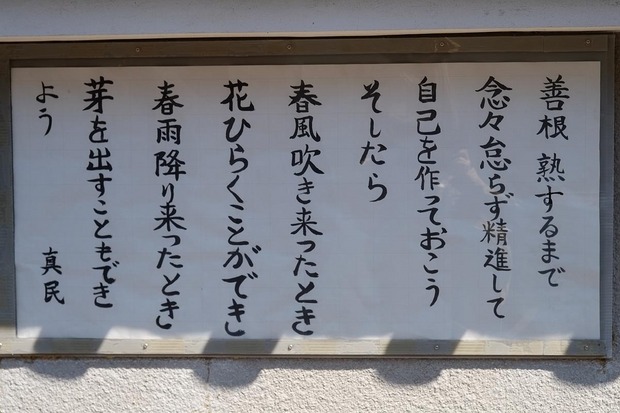 善根 熟するまで
念々怠らず精進して
自己を作っておこう
そしたら
春風吹き来ったとき
花ひらくことができ
春雨降り来ったとき
芽を出すこともでき
よう
真民